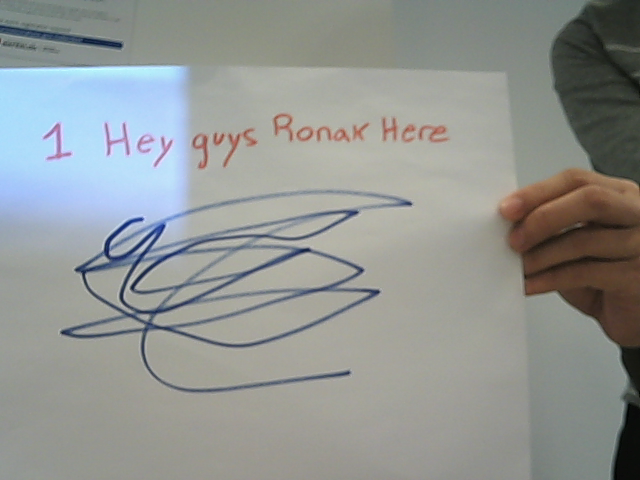 1 Hey guys Ronak Here